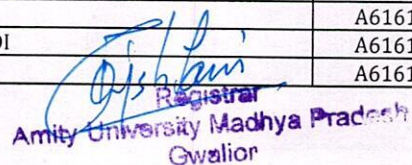 A6161
DI A6161
A6161
Registrar
Amity University Madhya Pradesh
Gwalior